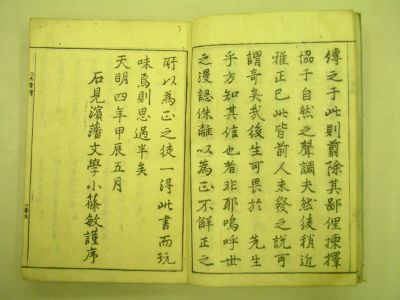 傳之于此則翦除其鄙俚揀擇
協于自然之聲調夫然後稍近
雅正已此皆前人未發之説可
謂奇矣哉後生可畏於 先生
乎方知其信也者非耶嗚呼世
之漫認侏離以為正不解正之
所以為正之徒一得此書而玩
味焉則思過半矣
天明四年甲辰五月
石見濱藩文學小篠敏謹序